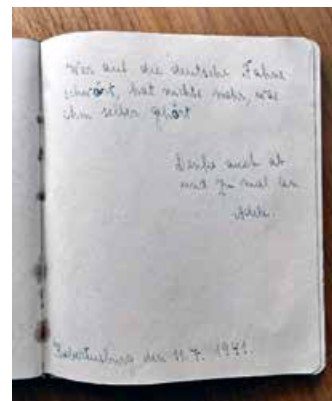 Wer auf die deutsche Fahne
schwört, hat nichts mehr, was
ihm selber gehört
Denke auch ab
und zu mal an
Adele.
Hubertusburg den 11.7. 1941.